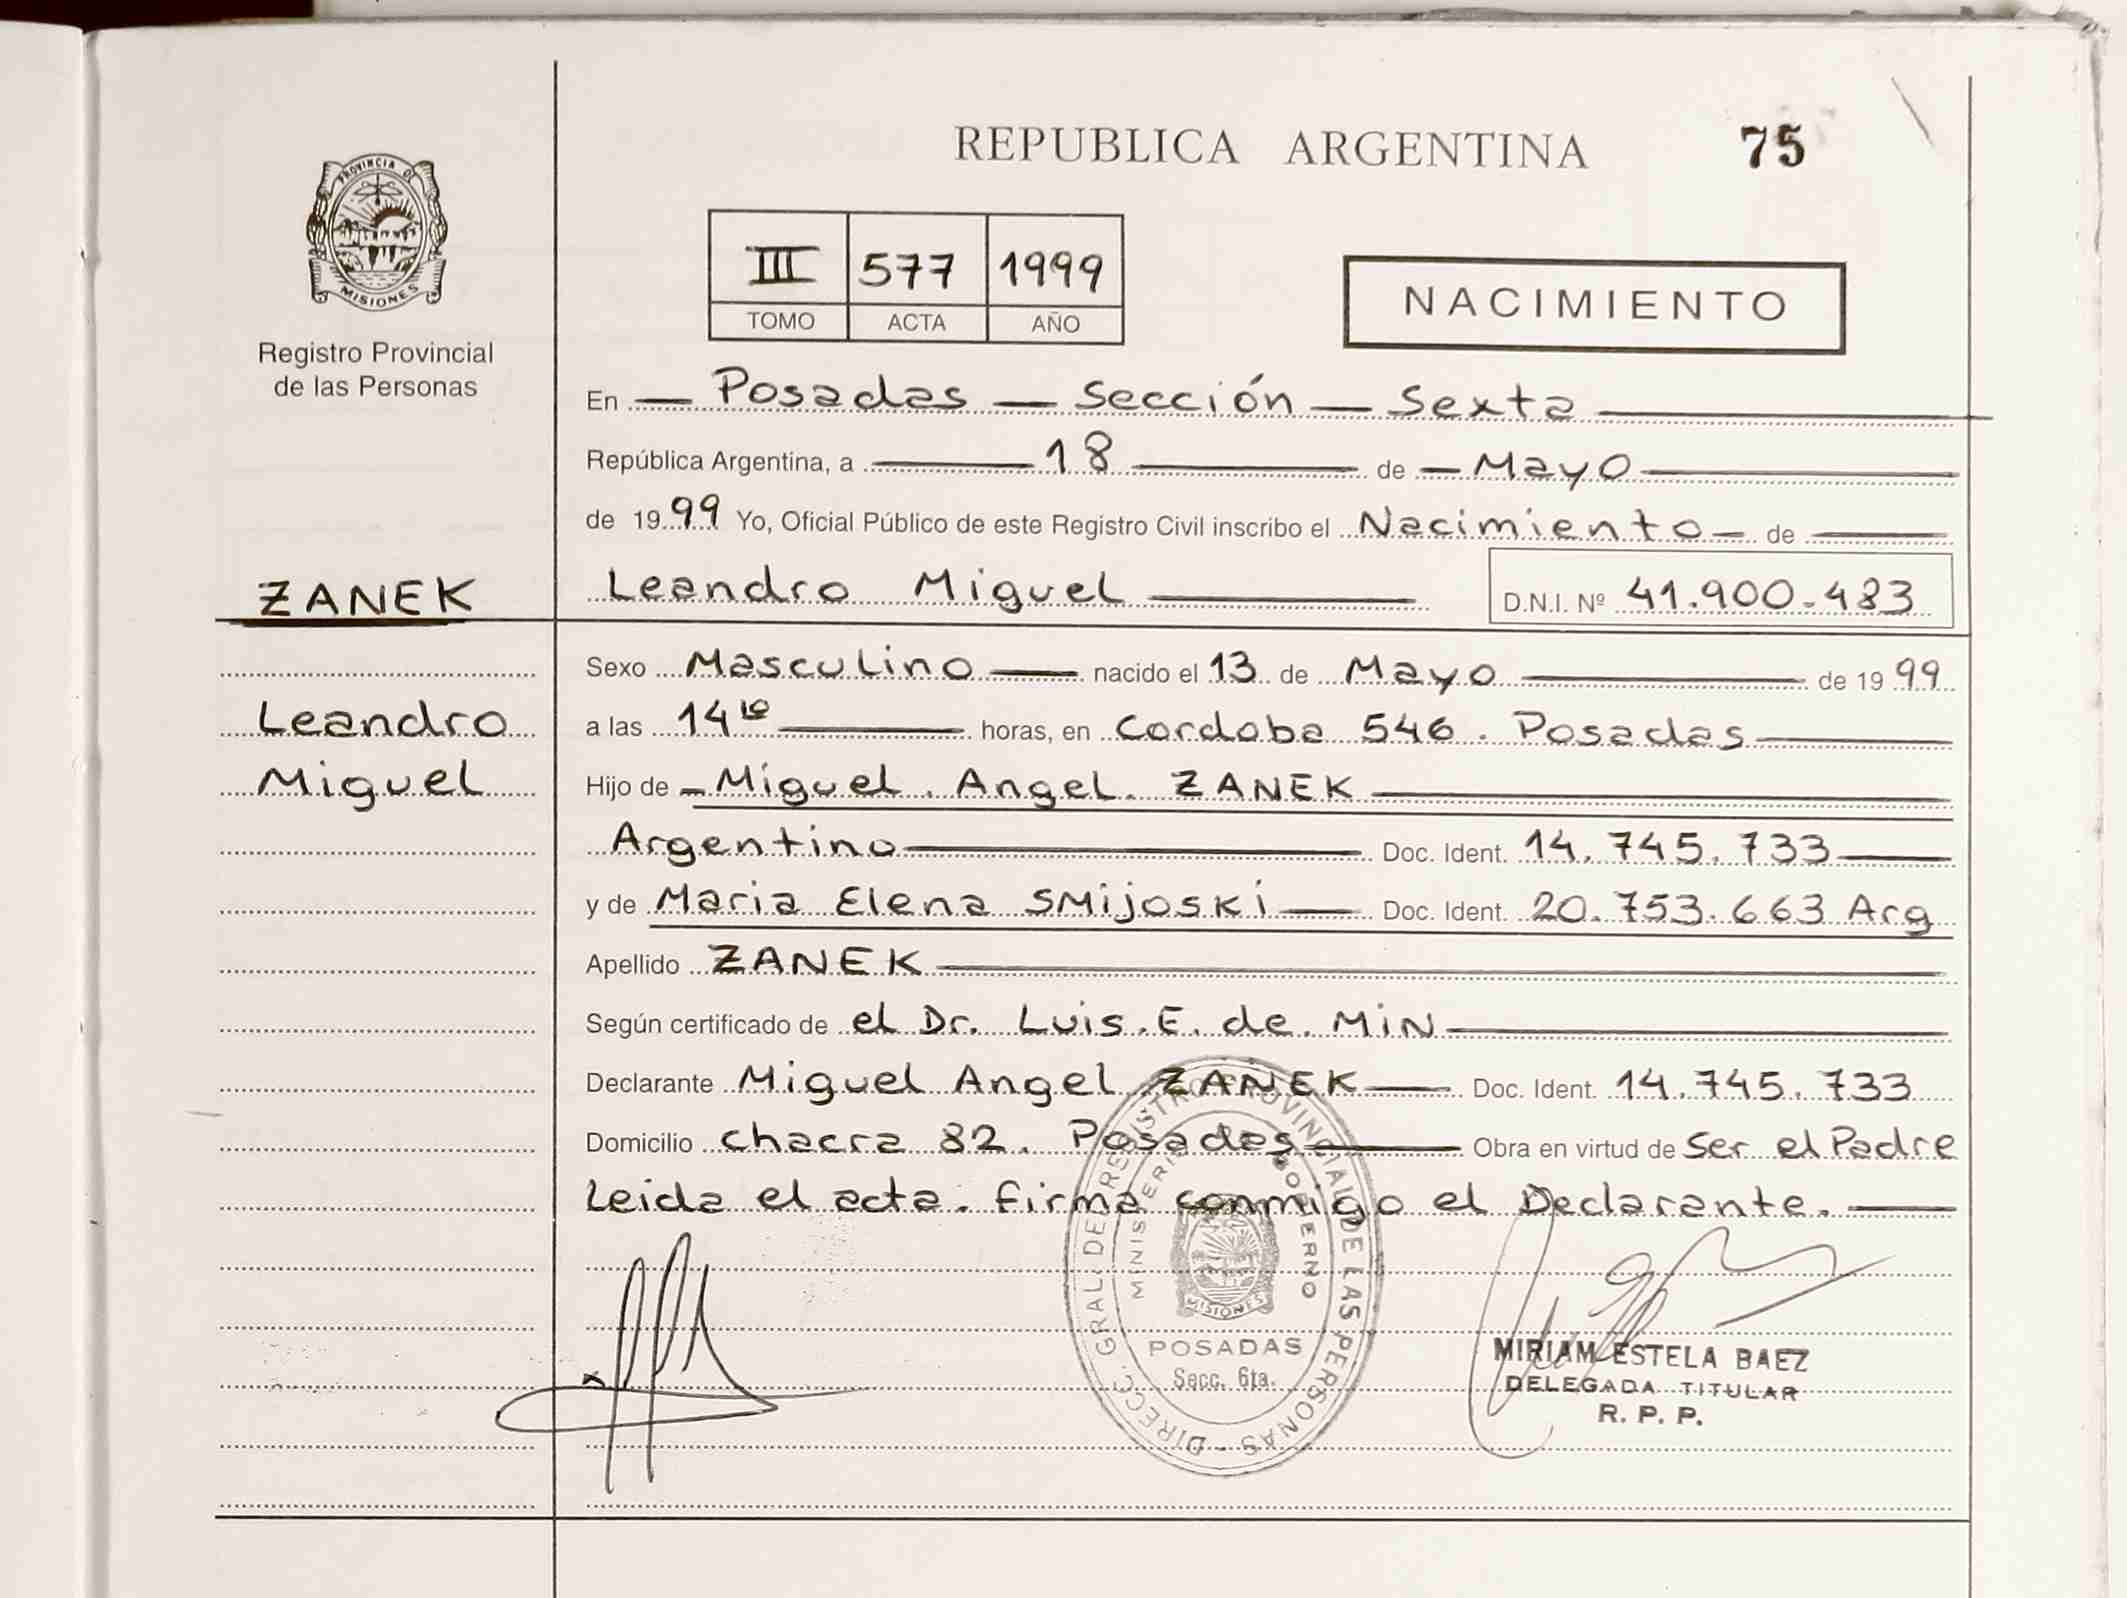 REPUBLICA ARGENTINA 75
PROVINCIA DE
MISIONES
Registro Provincial
de las Personas
III 577 1999
TOMO ACTA AÑO
NACIMIENTO
En Posadas Sección Sexta
República Argentina, a 18 de Mayo
de 1999 Yo, Oficial Público de este Registro Civil inscribo el Nacimiento de
ZANEK
Leandro
Miguel
Leandro Miguel D.N.I. Nº 41.900.483
Sexo Masculino nacido el 13 de Mayo de 1999
a las 14 10 horas, en Cordoba 546. Posadas
Hijo de Miguel Angel ZANEK
Argentino Doc. Ident. 14.745.733
y de Maria Elena SMijoSKi Doc. Ident. 20.753.663 Arg
Apellido ZANEK
Según certificado de el Dr. Luis.E. de MiN
Declarante Miguel Angel ZANEK Doc. Ident. 14.745.733
Domicilio chacra 82. Posadas Obra en virtud de Ser el Padre
Leida el acta. firma conmigo el Declarante.
DIRECC. GRAL. DE REGISTRO PROVINCIAL DE LAS PERSONAS
MINISTERIO GOBIERNO
MISIONES
POSADAS
Secc. 6ta.
MIRIAM ESTELA BAEZ
DELEGADA TITULAR
R. P. P.